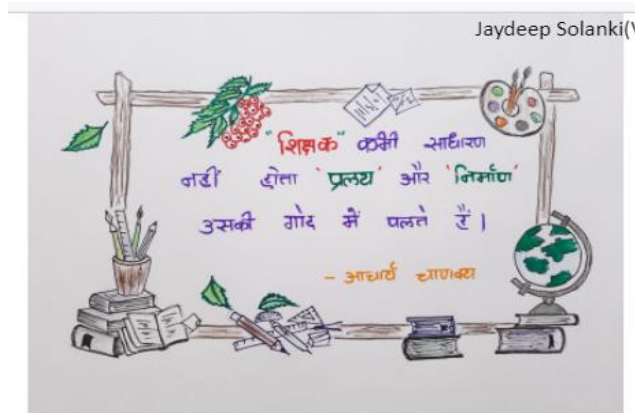 Jaydeep Solanki(
"शिक्षक" कभी साधारण
नहीं होता 'प्रलय' और 'निर्माण'
उसकी गोद में पलते हैं।
- आचार्य चाणक्य